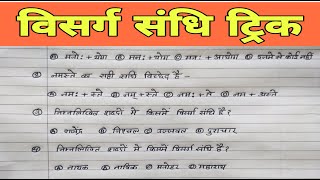 विसर्ग संधि ट्रिक
Ⓐ मनो: + योग Ⓑ मन: + योग Ⓒ मन: + आयोग Ⓓ इनमें से कोई नहीं
नमस्ते का सही संधि विच्छेद है -
Ⓐ नम: + स्ते Ⓑ नम् + स्ते Ⓒ नम: + ते Ⓓ नम + अस्ते
निम्नलिखित शब्दों में किसमें विसर्ग संधि है?
Ⓐ Ⓑ निश्चल Ⓒ उज्जवल Ⓓ दुराचार
निम्नलिखित शब्दों में किसमें विसर्ग संधि है?
Ⓐ नायक Ⓑ नाविक Ⓒ मनोहर Ⓓ महाराज